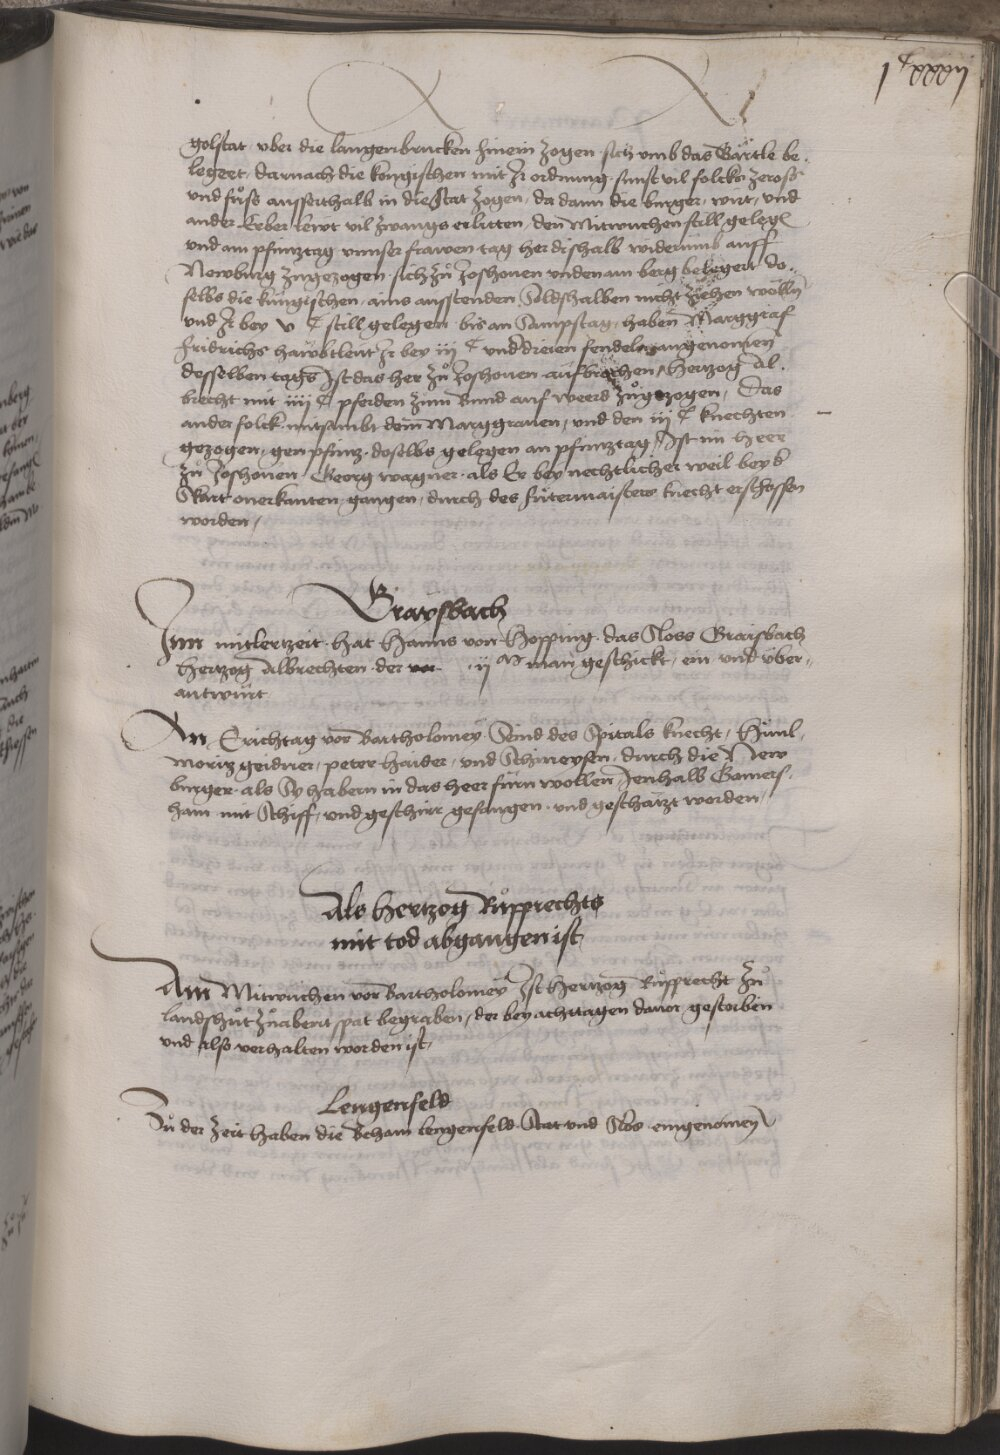 j c xxxij
golstat vber die langenbrucken hinein zogen sich vmb das Gartle be„
legert, darnach die kongischen mit Jr ordnung, sunst vil folcks ze ross
vnd fůss ausserthalb in die Stat zogen, da dann die burger, wirt, vnd
ander Erber lewt vil zwangs erlitten, den Mitwuchen still gelegen
vnd am pfinztag vnnser frawen tag herdishalb widerumb auff
Newburg zugezogen sich zů Joshouen vnden am berg belegert do„
selbs die kungischen, ains ausstenden Soldshalben nicht ziehen wolln
vnd Jr bey v c still gelegen bis an Sampstag, haben Marggraf
fridrichs hawbtleut Jr bey iij c vnd dreien fendeln angenomen
desselben tags Ist das her zů Joshouen aufbrochen, Hertzog Al„
brecht mit iiij c pferden zum Bund auf weerd zůgezogen, Das
ander folck mitsambt dem Marggrauen, vnd den iij c knechten
gezogen, gen pfünz, doselbs gelegen an pfinztag, Ist im heer
zu Joshouen, Georg wagner, als Er bey nechtlicher weil bey d
Skart onerkanten gangen, durch des fůtermaisters knecht erschossen
worden,
Graysbach
Inn mitlertzeit hat Hanns von Hopping das Sloss Graisbach
hertzog Albrechten der vor ij M man geschickt, ein vnd vber„
antwurt
An Erichtag vor Bartholomey Seind des Spitals knecht, Hänsl,
moritz geidner, peter haider, vnd Schmeysen, durch die New
burger als Sy habern in das heer fürn wollen Jenhalb Gamers„
ham mit Schiff, vnd geschirr gefangen vnd geschätzt worden,
Als hertzog Růpprechts
mit tod abgangen ist,
Am Mitwuchen vor Bartholomey Ist hertzog Růpprecht zů
landshůt zůabent spat begraben, der bey achttagen dauor gestorben
vnd also verhalten worden ist,
Lengenfeld
Zů der zeit haben die Beham lengenfeld Stat vnd Slos eingenomen